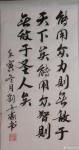 能用眾力則無敵於
天下矣能用眾智則
無畏於聖人矣
壬寅冬月劉